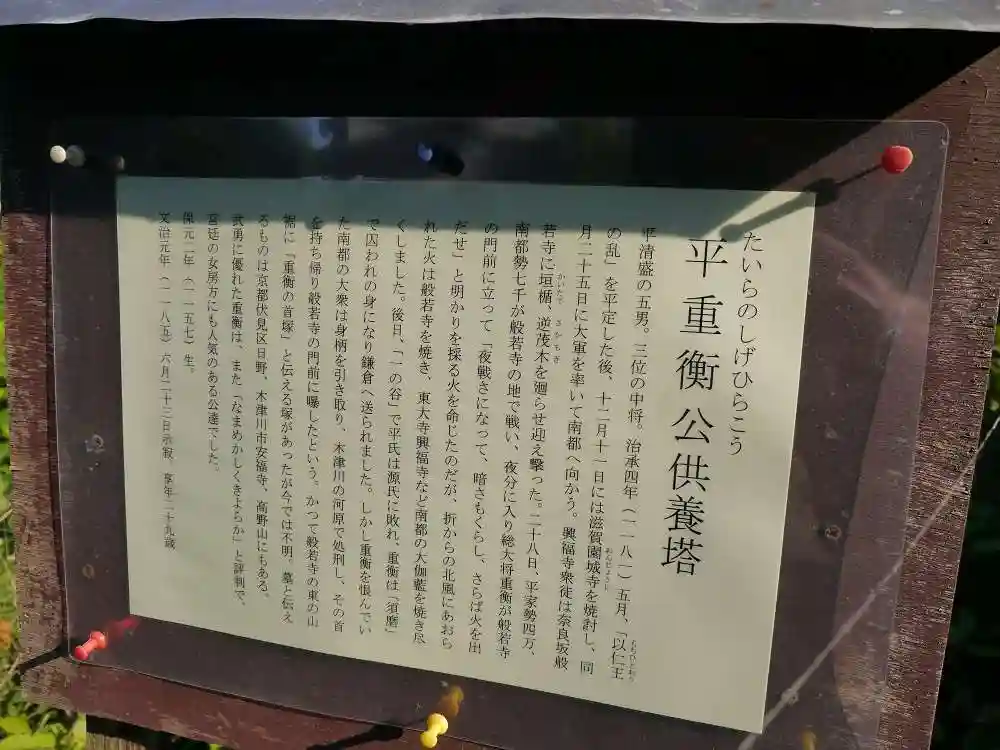 たいらのしげひらこう
平重衡公供養塔
平清盛の五男。三位の中将。治承四年（一一八一）五月、「以仁王
もちひとおう
の乱」を平定した後、十二月十一日には滋賀園城寺を焼討し、同
おんじょうじ
月二十五日に大軍を率いて南都へ向かう。興福寺衆徒は奈良坂般
若寺に垣楯、逆茂木を廻らせ迎え撃った。二十八日、平家勢四万、
かいだて さかもぎ
南都勢七千が般若寺の地で戦い、夜分に入り総大将重衡が般若寺
の門前に立って「夜戦さになって、暗さもくらし、さらば火を出
だせ」と明かりを採る火を命じたのだが、折からの北風にあおら
れた火は般若寺を焼き、東大寺興福寺など南都の大伽藍を焼き尽
くしました。後日、「一の谷」で平氏は源氏に敗れ、重衡は「須磨」
で囚われの身になり鎌倉へ送られました。しかし重衡を恨んでい
た南都の大衆は身柄を引き取り、木津川の河原で処刑し、その首
を持ち帰り般若寺の門前に曝したという。かつて般若寺の東の山
裾に「重衡の首塚」と伝える塚があったが今では不明。墓と伝え
るものは京都伏見区日野、木津川市安福寺、高野山にもある。
武勇に優れた重衡は、また「なまめかしくきよらか」と評判で、
宮廷の女房方にも人気のある公達でした。
保元二年（一一五七）生。
文治元年（一一八五）六月二十三日示寂。享年二十九歳